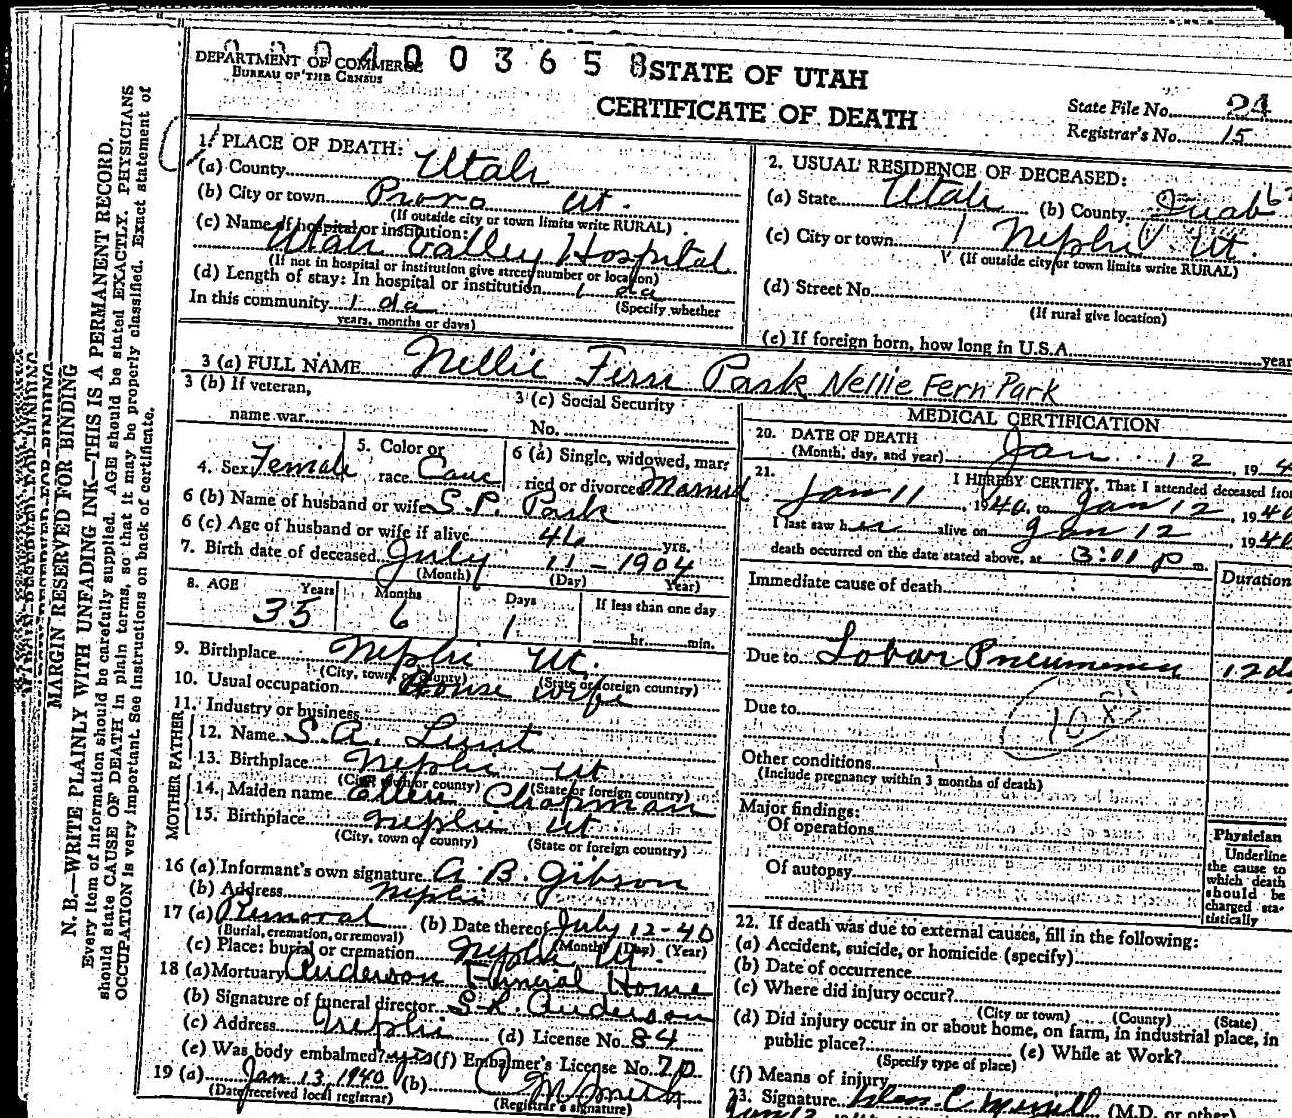 0 0 9 4 0 0 3 6 5 8
DEPARTMENT OF COMMERCE
BUREAU OF THE CENSUS
STATE OF UTAH
CERTIFICATE OF DEATH
State File No. 24
Registrar's No. 15
MARGIN RESERVED FOR BINDING
N. B.—WRITE PLAINLY WITH UNFADING INK—THIS IS A PERMANENT RECORD.
Every item of information should be carefully supplied. AGE should be stated EXACTLY. PHYSICIANS
should state CAUSE OF DEATH in plain terms, so that it may be properly classified. Exact statement of
OCCUPATION is very important. See instructions on back of certificate.
1. PLACE OF DEATH:
(a) County Utah
(b) City or town Provo Ut.
(If outside city or town limits write RURAL)
(c) Name of hospital or institution:
Utah Valley Hospital
(If not in hospital or institution give street number or location)
(d) Length of stay: In hospital or institution 1 da
(Specify whether
In this community 1 da
years, months or days)
2. USUAL RESIDENCE OF DECEASED:
(a) State Utah (b) County Juab
(c) City or town Nephi Ut.
(If outside city or town limits write RURAL)
(d) Street No.
(If rural give location)
(e) If foreign born, how long in U.S.A. year
3 (a) FULL NAME Nellie Fern Park Nellie Fern Park
3 (b) If veteran,
name war
3 (c) Social Security
No.
4. Sex Female
5. Color or
race Cauc
6 (a) Single, widowed, mar-
ried or divorced Married
6 (b) Name of husband or wife S. P. Park
6 (c) Age of husband or wife if alive 46 yrs.
7. Birth date of deceased July 11 - 1904
(Month) (Day) Year)
8. AGE Years Months Days If less than one day
35 6 1 hr. min.
9. Birthplace Nephi Ut.
(City, town or county) (State or foreign country)
10. Usual occupation House wife
11. Industry or business
FATHER
12. Name S. A. Lunt
13. Birthplace Nephi Ut
(City, town or county) (State or foreign country)
MOTHER
14. Maiden name Ellen Chapman
15. Birthplace Nephi Ut
(City, town of county) (State or foreign country)
16 (a) Informant's own signature A. B. Gibson
(b) Address Nephi
17 (a) Removal (b) Date thereof July 12-40
(Burial, cremation, or removal) (Month) (Day) (Year)
(c) Place: burial or cremation Nephi Ut
18 (a) Mortuary Anderson Funeral Home
(b) Signature of funeral director S. L. Anderson
(c) Address Nephi (d) License No. 84
(e) Was body embalmed? yes (f) Embalmer's License No. 70
19 (a) Jan 13, 1940 (b)
(Date received local registrar) (Registrar's signature)
MEDICAL CERTIFICATION
20. DATE OF DEATH
(Month, day, and year) Jan 12, 194
21. I HEREBY CERTIFY, That I attended deceased from
Jan 11, 1940, to Jan 12, 1940
I last saw her alive on Jan 12, 1940
death occurred on the date stated above, at 3:01 P m.
Duration
Immediate cause of death
Due to Lobar Pneumonia 12 da
Due to
108
Other conditions
(Include pregnancy within 3 months of death)
Major findings:
Of operations
Of autopsy
Physician
Underline
the cause to
which death
should be
charged sta-
tistically
22. If death was due to external causes, fill in the following:
(a) Accident, suicide, or homicide (specify)
(b) Date of occurrence
(c) Where did injury occur?
(City or town) (County) (State)
(d) Did injury occur in or about home, on farm, in industrial place, in
public place? (e) While at Work?
(Specify type of place)
(f) Means of injury
23. Signature C Merrill (M.D. or other)